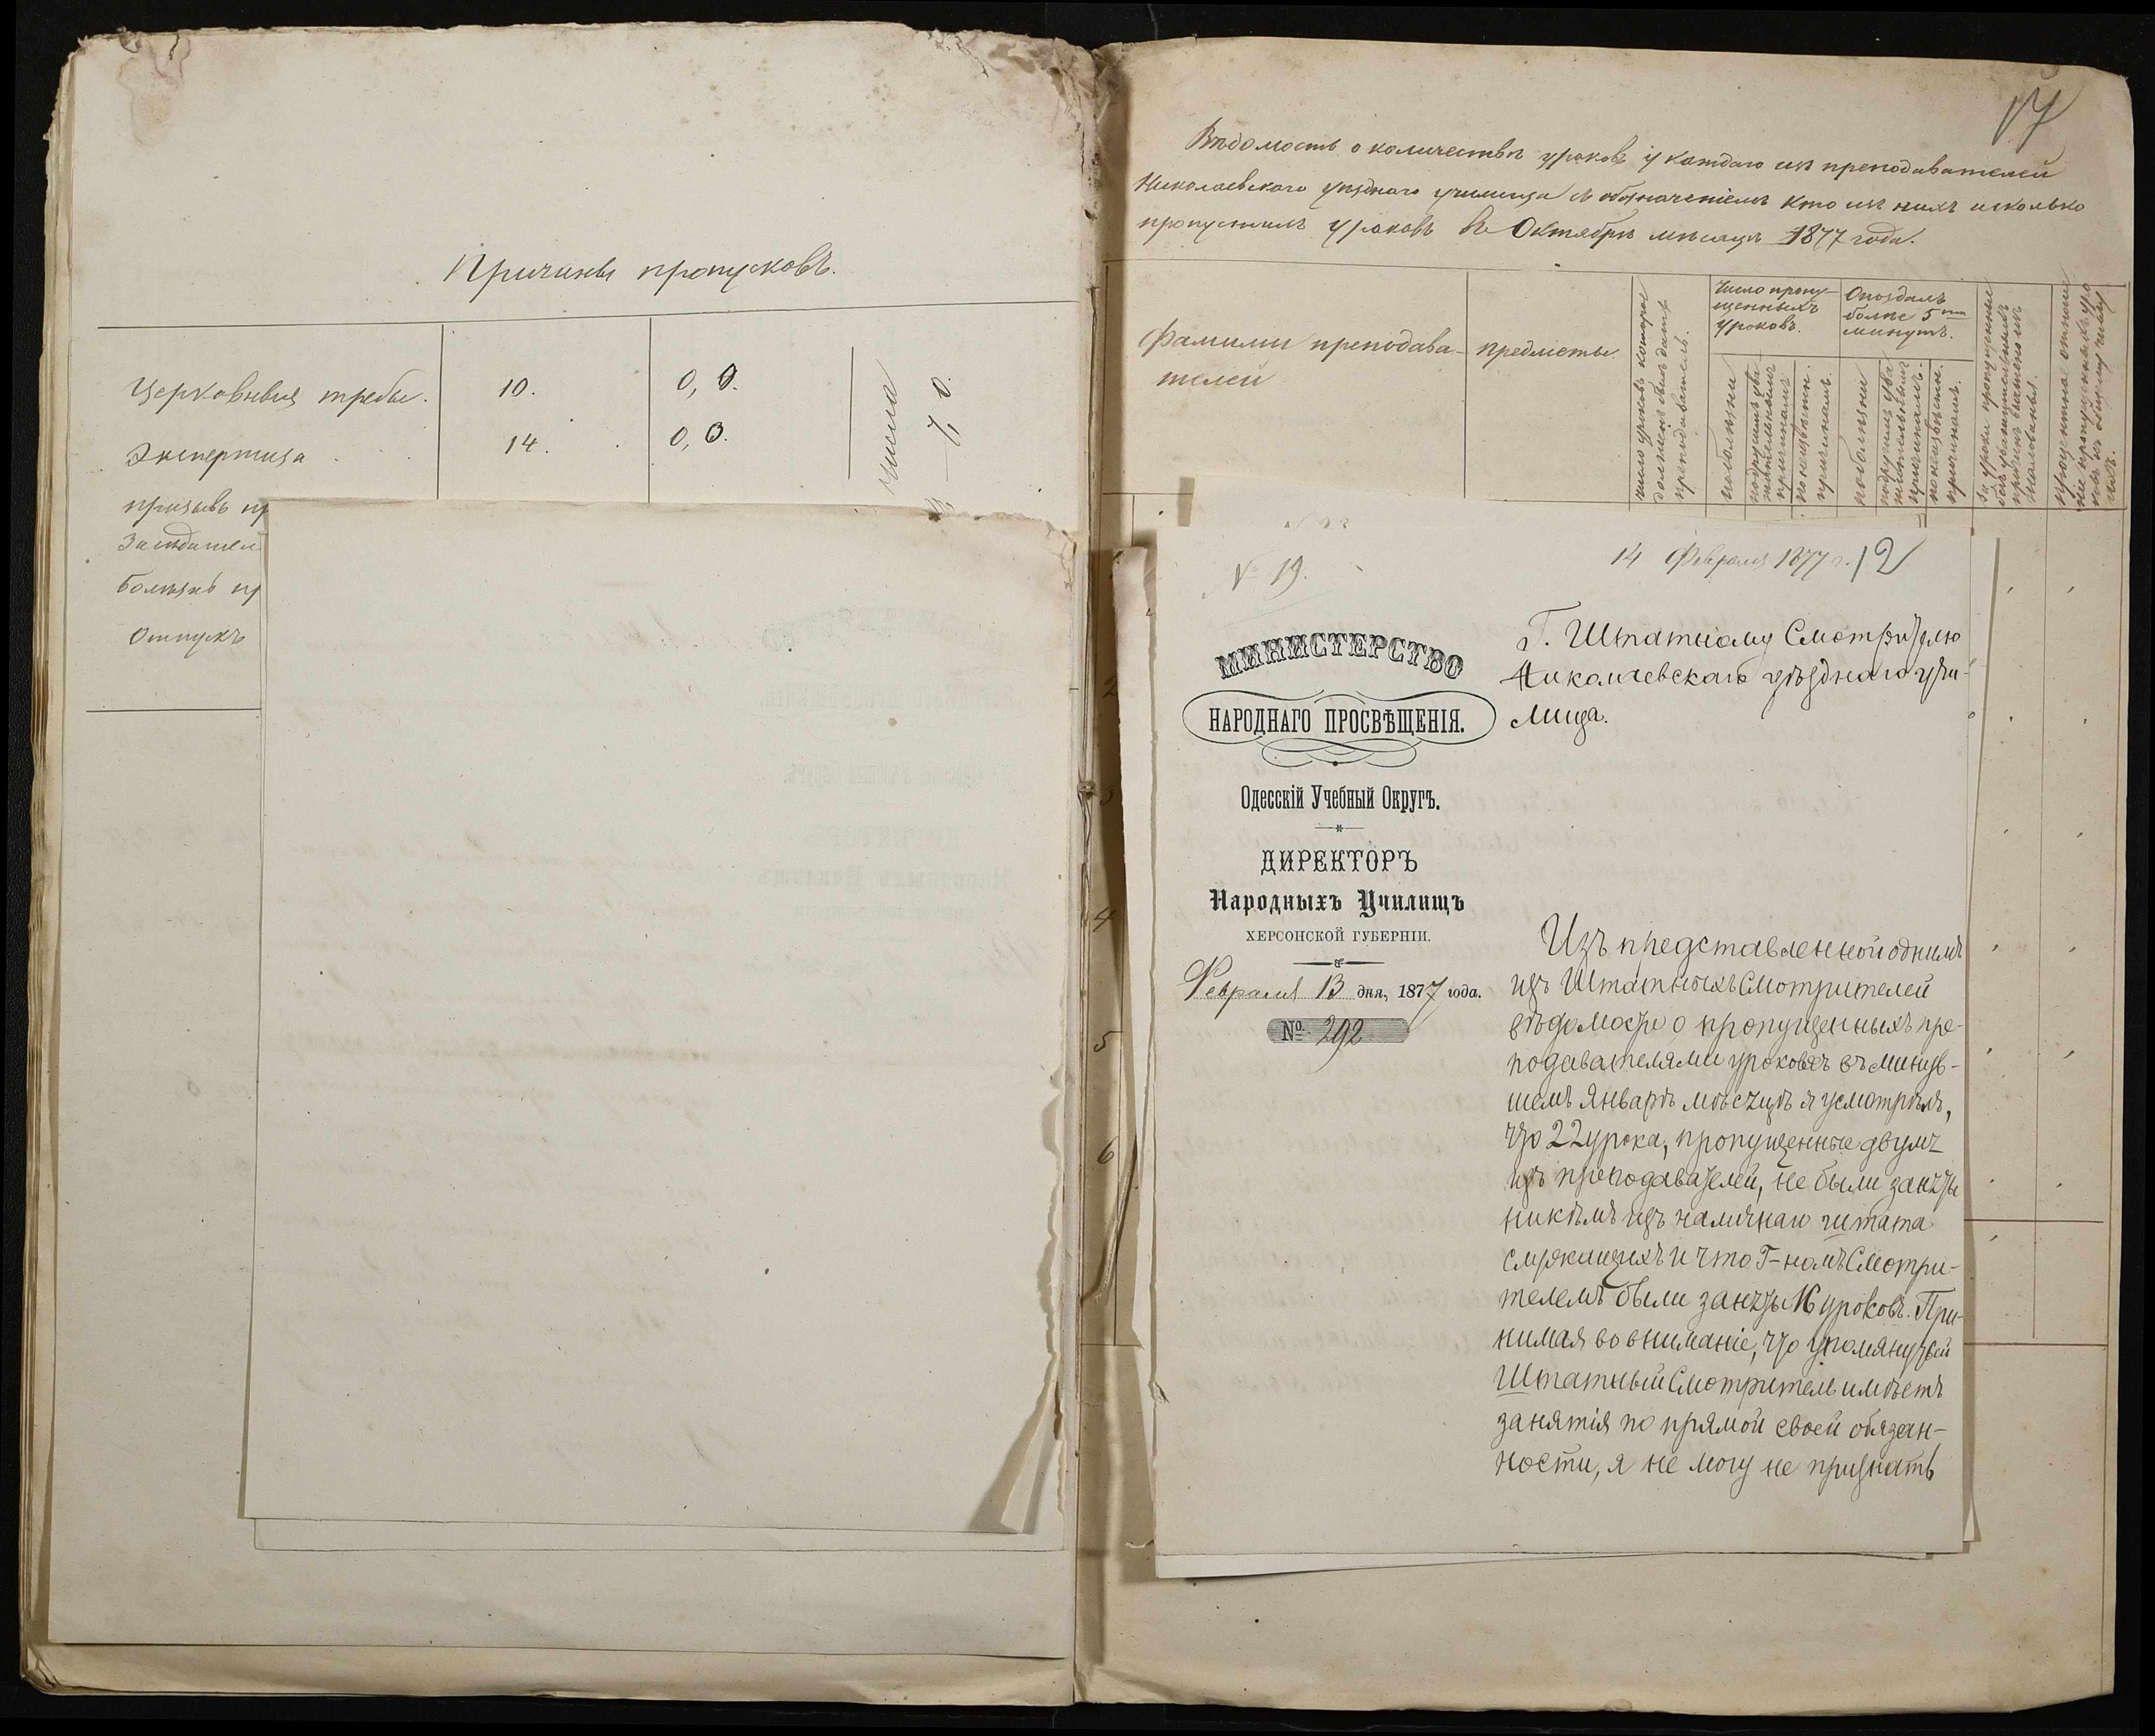 Причины пропусковъ.
Церковныя требы. 10. 0, 0.
Экспертиза 14. 0, 0.
призывъ пр
Засѣдател
болѣзнь пр
Отпускъ
числа
17
Вѣдомость о количествѣ уроковъ у каждаго изъ преподавателей
Николаевскаго уѣзднаго училища съ обозначеніемъ кто изъ нихъ и сколько
пропустилъ уроковъ въ Октябрѣ мѣсяцѣ 1877 года.
Фамиліи преподава-
телей
предметы
число уроковъ которое
долженъ былъ дать
преподаватель.
Число пропу-
щенныхъ
уроковъ.
Опоздалъ
болѣе 5ти
минутъ.
по болѣзни
по другимъ ува
жительнымъ
причинамъ
по неизвѣстн.
причинамъ.
по болѣзни
по другимъ ува
жительнымъ
причинамъ.
по неизвѣстн.
причинамъ.
за уроки пропущенные
безъ уважительныхъ
причинъ вычтено изъ
жалованья.
процентное отноше
ніе пропущенныхъ уро
ковъ къ общему числу
ихъ.
2
3
4
5
6
№ 19.
14 Февраля 1877 г. 12
МИНИСТЕРСТВО
НАРОДНАГО ПРОСВѢЩЕНІЯ.
Одесскій Учебный Округъ.
ДИРЕКТОРЪ
Народныхъ Училищъ
ХЕРСОНСКОЙ ГУБЕРНІИ.
Февраля 13 дня, 1877 года.
№ 292
Г. Штатному Смотрителю
Николаевскаго уѣзднаго учи-
лища.
Изъ представленной однимъ
изъ Штатныхъ Смотрителей
вѣдомости о пропущенныхъ пре-
подавателями урокахъ въ минув-
шемъ Январѣ мѣсяцѣ я усмотрѣлъ,
что 22 урока, пропущенные двумя
изъ преподавателей, не были заняты
никѣмъ изъ наличнаго штата
служащихъ и что Г-номъ Смотри-
телемъ были заняты 16 уроковъ. При-
нимая во вниманіе, что упомянутый
Штатный Смотритель имѣетъ
занятія по прямой своей обязан-
ности, я не могу не признать